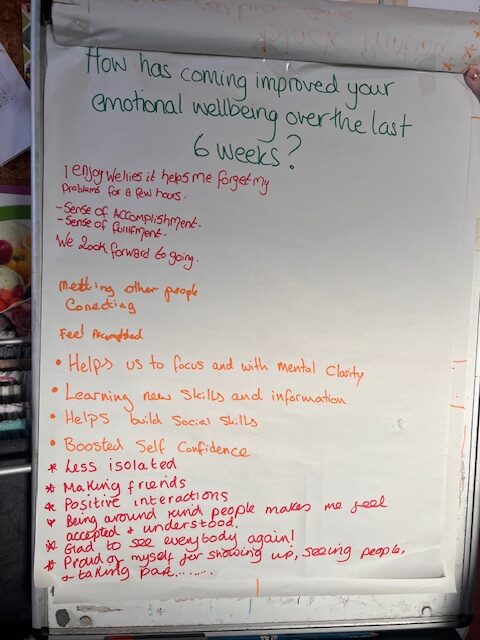 How has coming improved your
emotional wellbeing over the last
6 weeks?
I enjoy Wellies it helps me forget my
Problems for a few hours.
- Sense of Accomplishment.
- Sense of fullfment.
We look forward to going.
Metting other people
Conecting
Feel Accomplished
• Helps us to focus and with Mental Clarity
• Learning new skills and information
• Helps build Social Skills
• Boosted Self Confidence
* Less isolated
* Making friends
* Positive interactions
* Being around kind people makes me feel
accepted & understood.
* Glad to see everybody again!
* Proud of myself for showing up, seeing people,
& taking part........